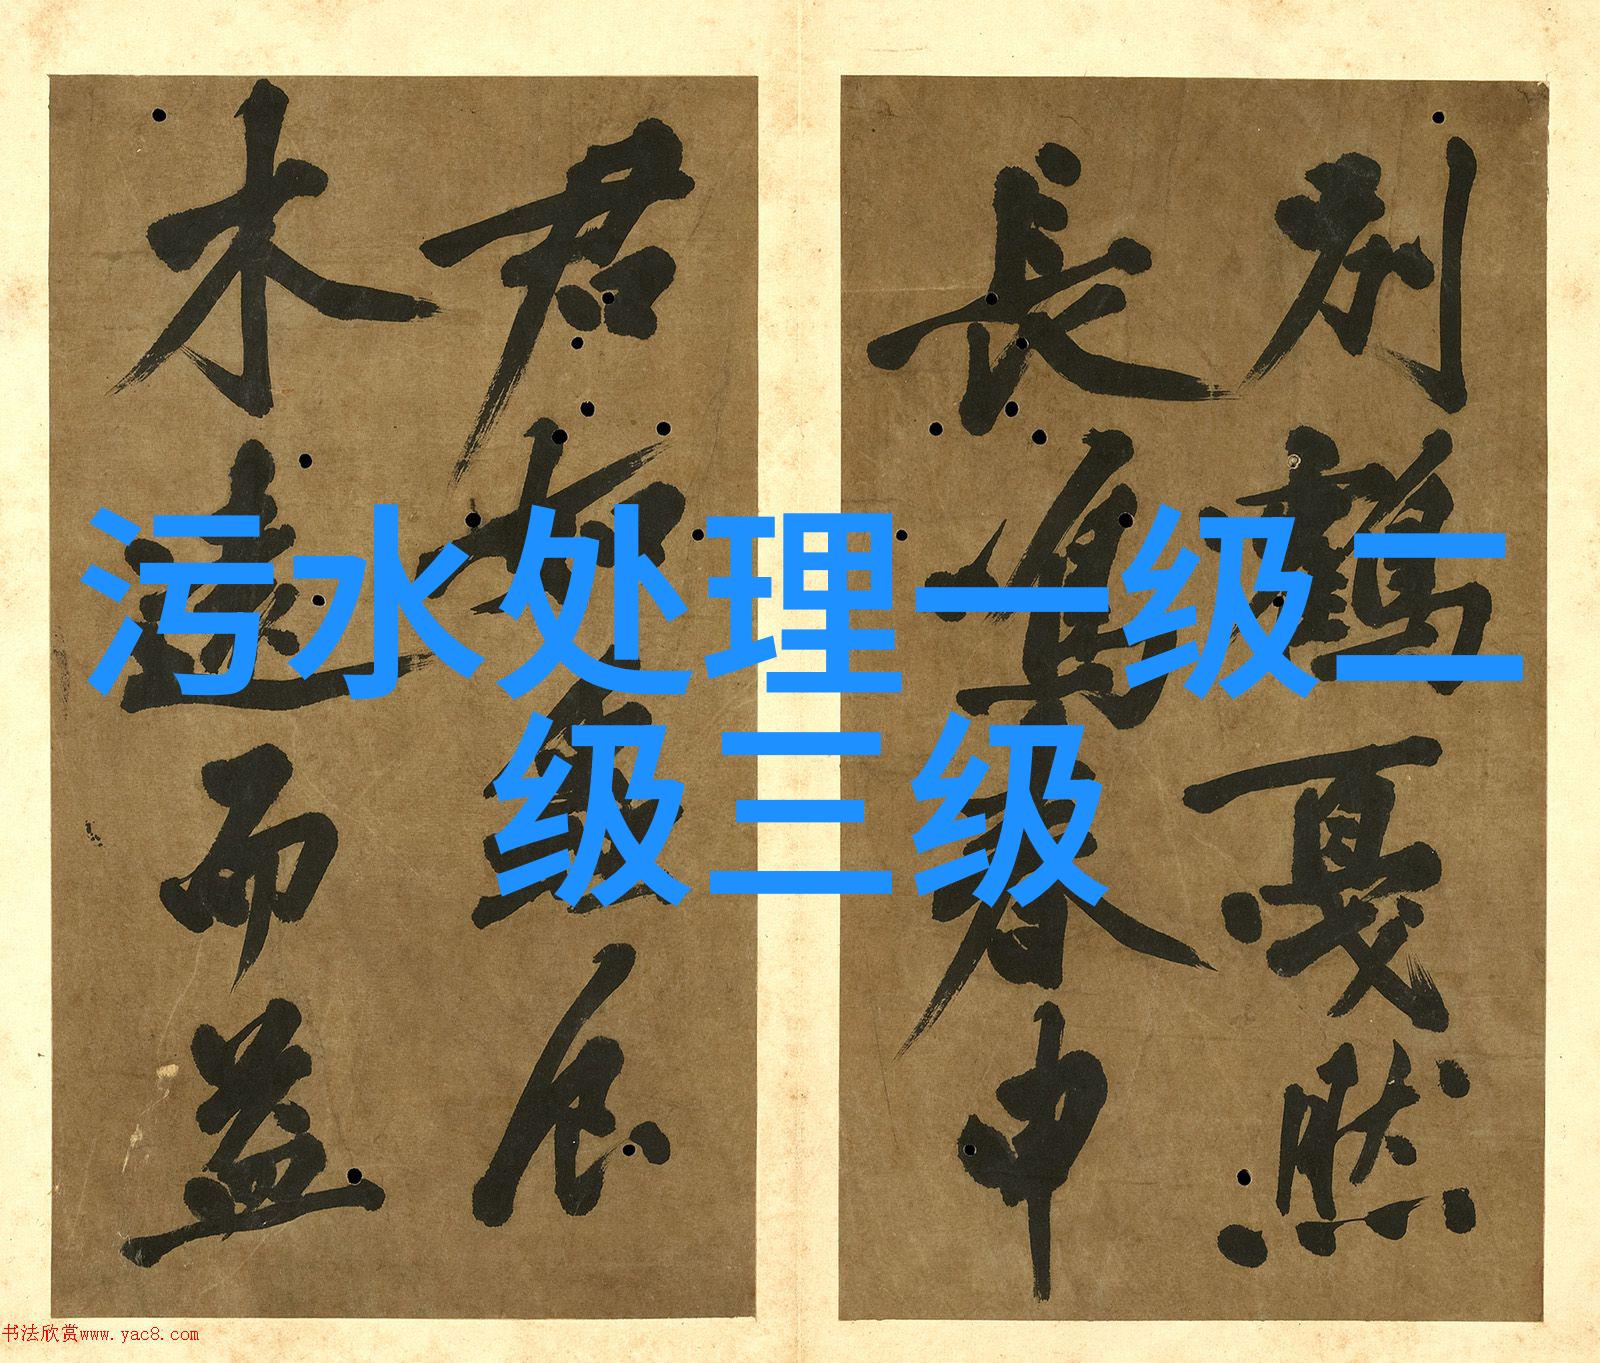 別鶴戛然
長鳴春申
君如
木遠而益
污水处理一级二
级三级
书法欣赏www.yac8.com